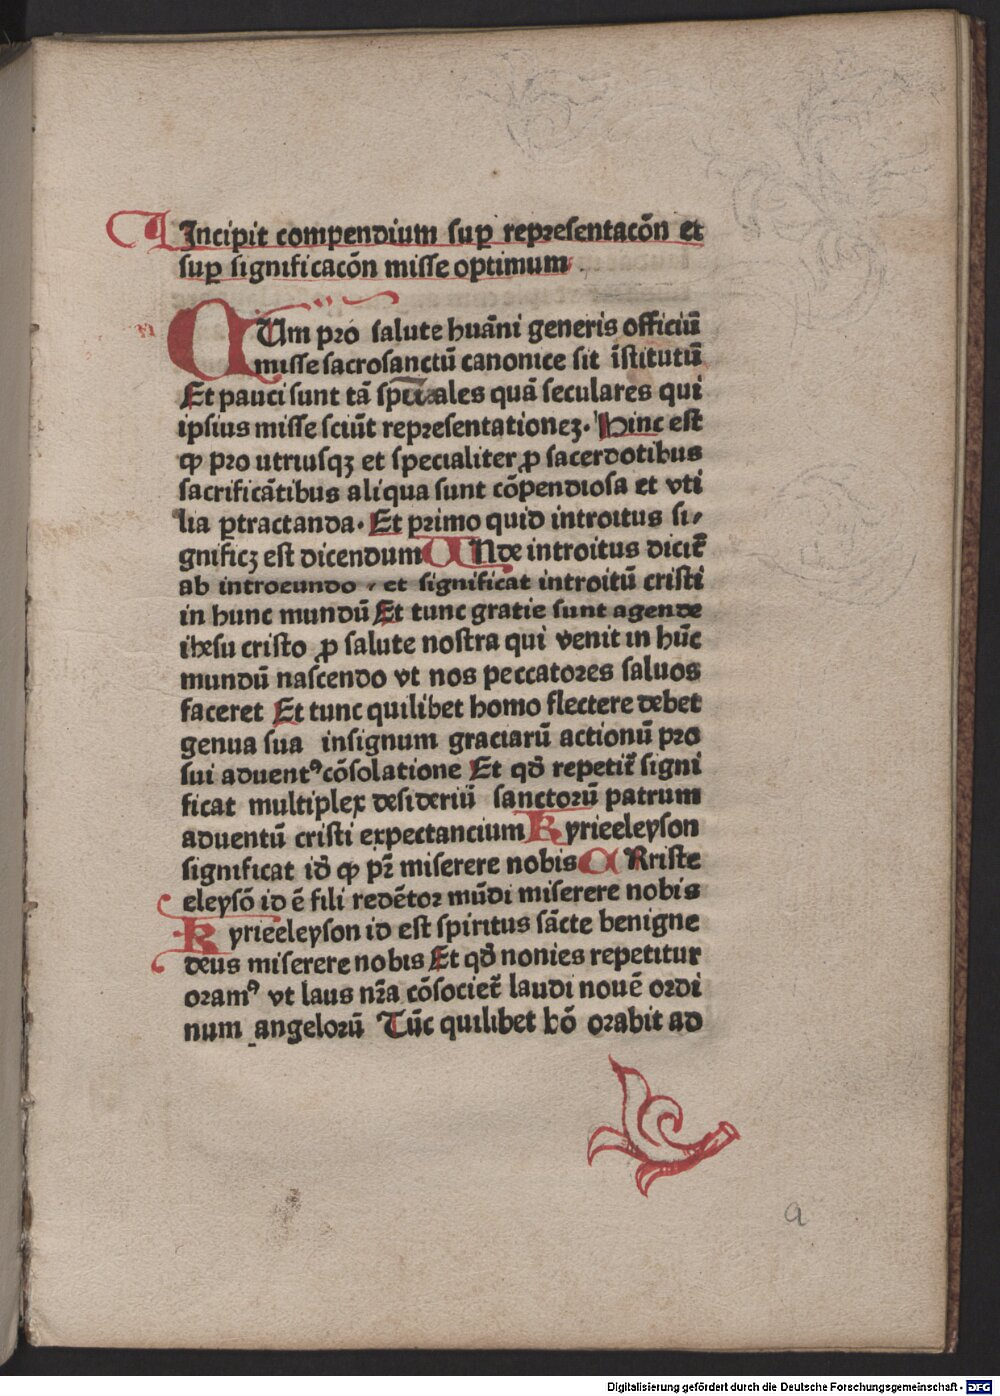 Incipit compendium suꝑ repꝛesentacõn et
suꝑ significacõn misse optimum
CUm pꝛo salute huãni generis officiũ
misse sacrosanctũ canonice sit ĩstitutũ
Et pauci sunt tã ales quã seculares qui
ipsius misse sciũt repꝛesentationeꝫ. Hinc est
ꝙ pꝛo utriusqꝫ et specialiter ꝓ sacerdotibus
sacrificãtibus aliqua sunt cõpendiosa et vti
lia ꝑtractanda. Et pꝛimo quid introitus si⸗
gnificꝫ est dicendum UNde introitus dicit̃
ab introeundo, et significat introitũ cristi
in hunc mundũ Et tunc gratie sunt agende
ihesu cristo ꝓ salute nostra qui venit in hũc
mundũ nascendo vt nos peccatoꝛes saluos
faceret Et tunc quilibet homo flectere debet
genua sua insignum graciarũ actionũ pꝛo
sui aduentꝰ cõsolatione Et qđ repetit̃ signi
ficat multiplex desideriũ sanctoꝛũ patrum
aduentũ cristi expectancium Kyrieeleyson
significat iđ ꝙ pr̃ miserere nobis CRriste
eleysõ id ẽ fili redẽtoꝛ mũdi miserere nobis
Kyrieeleyson id est spiritus sãcte benigne
deus miserere nobis Et qđ nonies repetitur
oꝛamꝰ vt laus nr̃a cõsociet̃ laudi nouẽ oꝛdi
num angeloꝛũ Tũc quilibet hõ oꝛabit ad
a
Digitalisierung gefördert durch die Deutsche Forschungsgemeinschaft - DFG